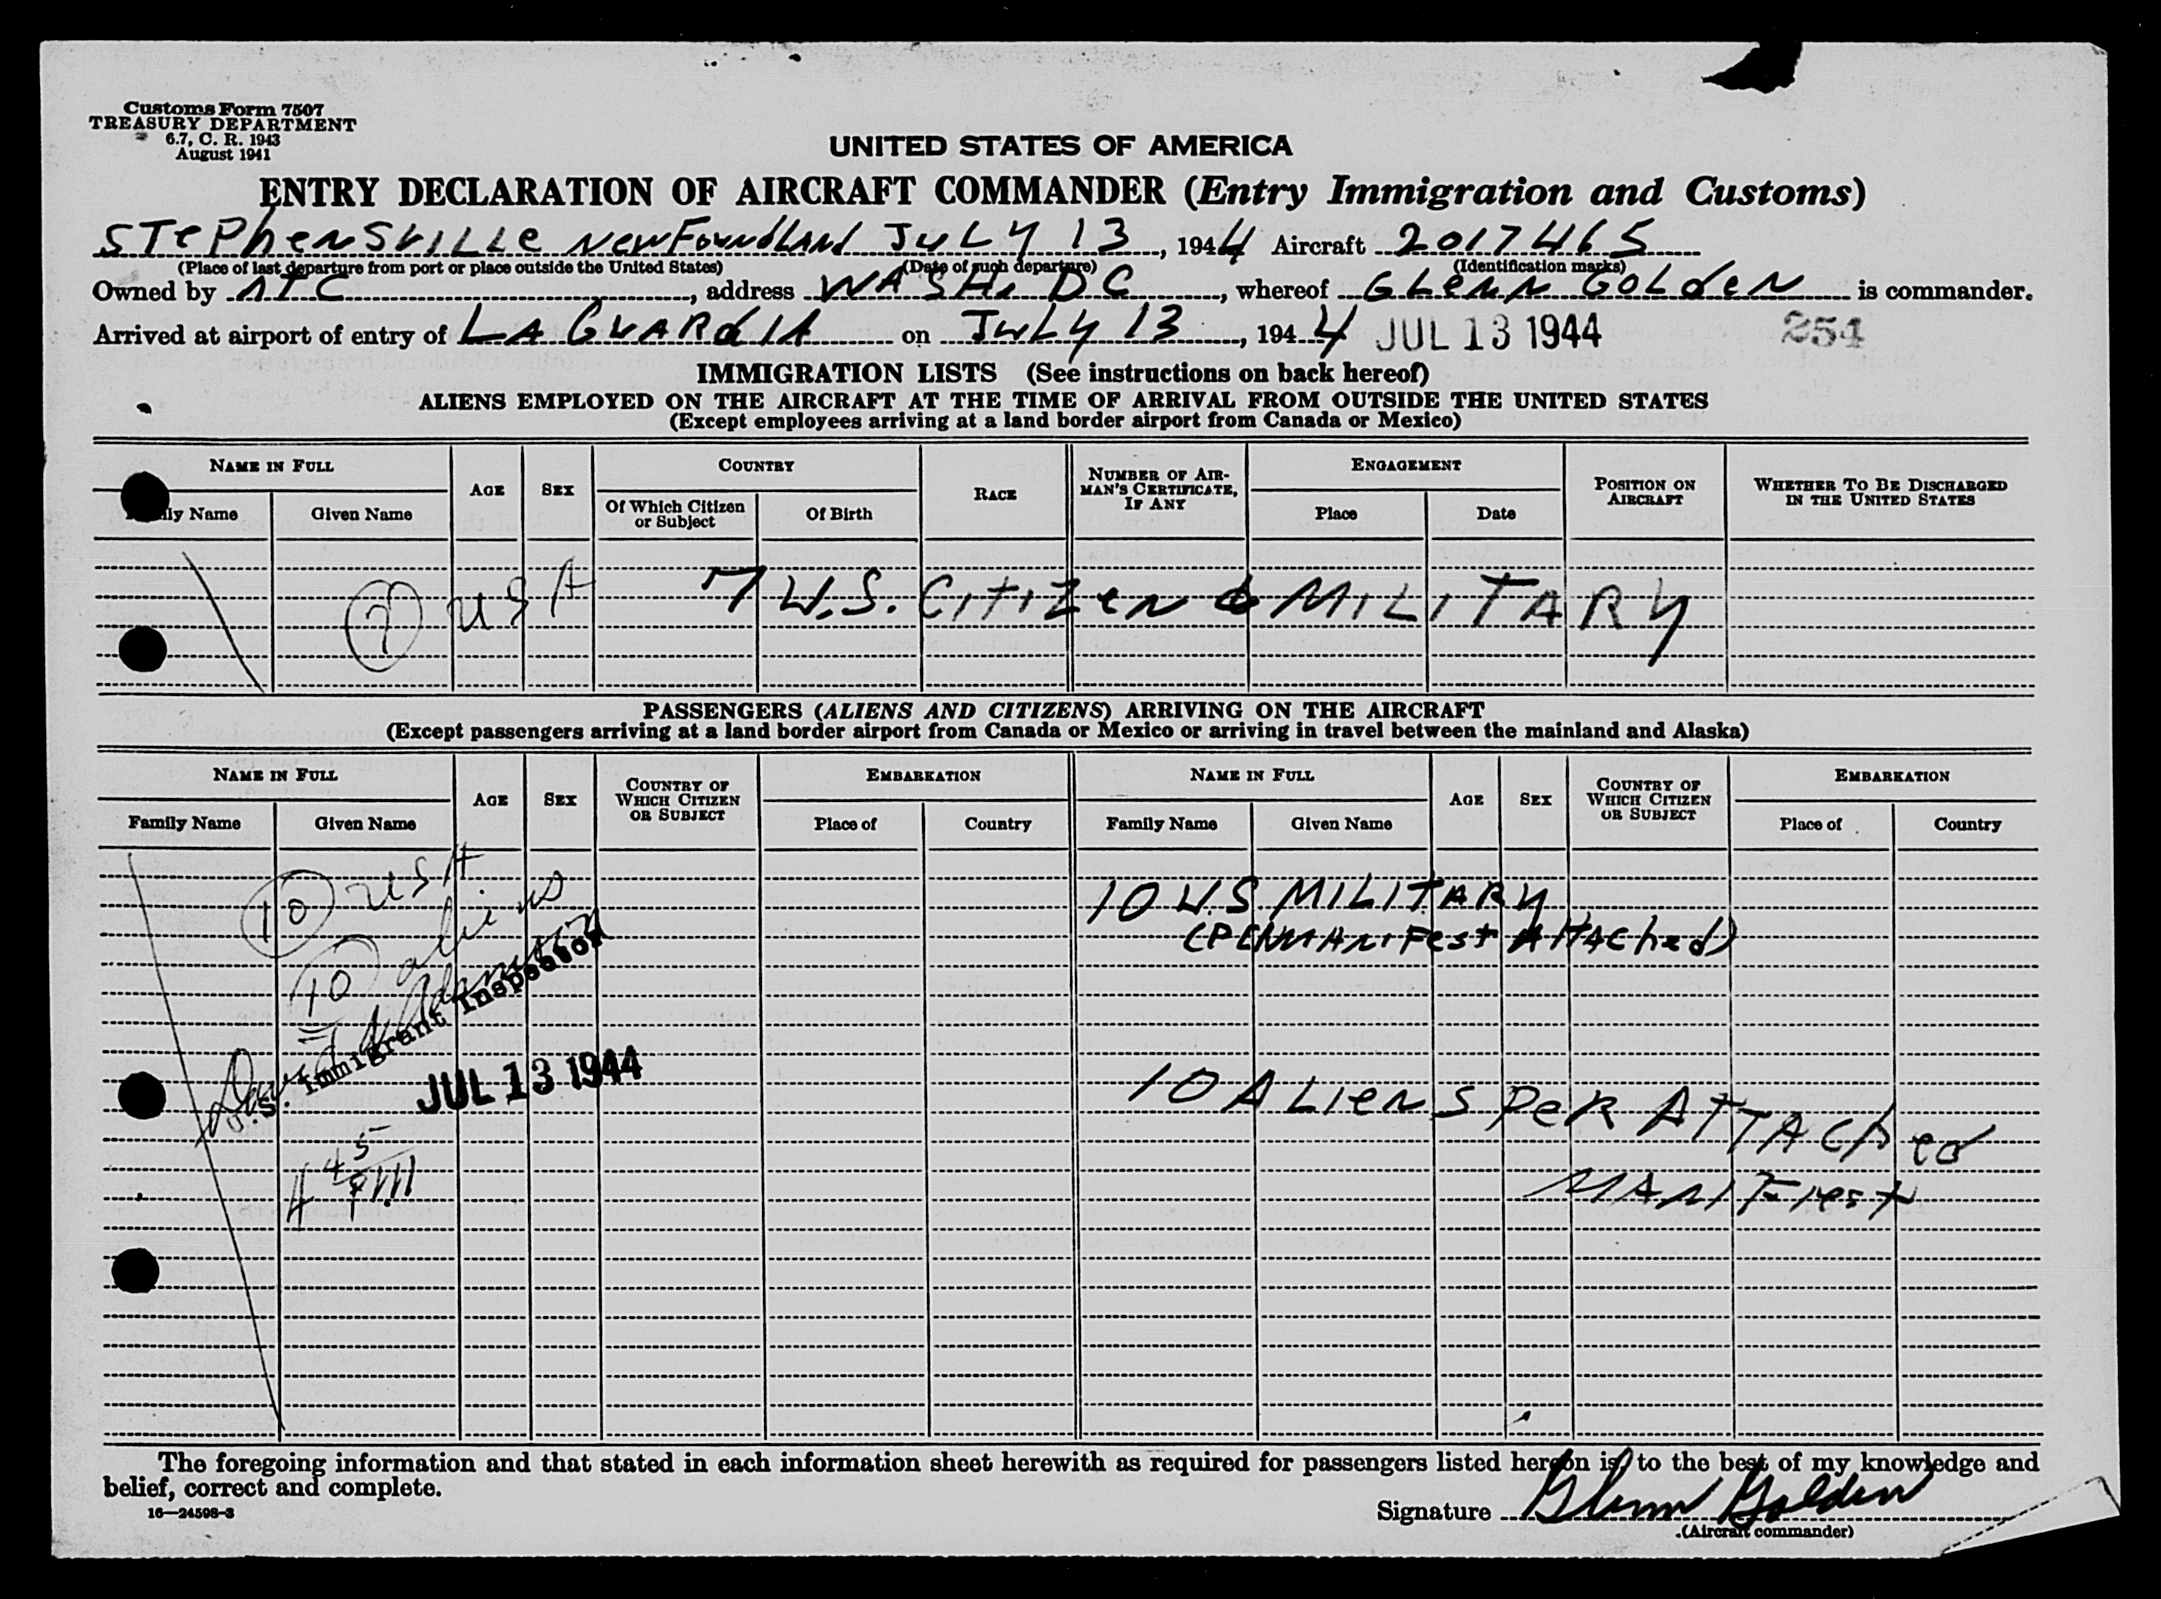 Customs Form 7507
TREASURY DEPARTMENT
6.7, C. R. 1943
August 1941
UNITED STATES OF AMERICA
ENTRY DECLARATION OF AIRCRAFT COMMANDER (Entry Immigration and Customs)
STePhenSVILLe NewFoundLand JuLy 13, 1944 Aircraft 2017465
(Place of last departure from port or place outside the United States) (Date of such departure) (Identification marks)
Owned by ATC, address WASH. DC, whereof GLenn GOLdeN is commander.
Arrived at airport of entry of LA GUARdIA on JuLy 13, 1944 JUL 13 1944 254
IMMIGRATION LISTS (See instructions on back hereof)
ALIENS EMPLOYED ON THE AIRCRAFT AT THE TIME OF ARRIVAL FROM OUTSIDE THE UNITED STATES
(Except employees arriving at a land border airport from Canada or Mexico)
NAME IN FULL AGE SEX COUNTRY RACE NUMBER OF AIRMAN'S CERTIFICATE, IF ANY ENGAGEMENT POSITION ON AIRCRAFT WHETHER TO BE DISCHARGED IN THE UNITED STATES
Family Name Given Name Of Which Citizen or Subject Of Birth Place Date
7 USA 7 U.S. CITIZen & MILITARY
PASSENGERS (ALIENS AND CITIZENS) ARRIVING ON THE AIRCRAFT
(Except passengers arriving at a land border airport from Canada or Mexico or arriving in travel between the mainland and Alaska)
NAME IN FULL AGE SEX COUNTRY OF WHICH CITIZEN OR SUBJECT EMBARKATION NAME IN FULL AGE SEX COUNTRY OF WHICH CITIZEN OR SUBJECT EMBARKATION
Family Name Given Name Place of Country Family Name Given Name Place of Country
10 USA. 10 U.S. MILITARY
(PER MANiFest ATTAChed)
10 aliens
U.S. Immigrant Inspector
JUL 13 1944
10 ALIenS PeR ATTAChed
MANIFest
The foregoing information and that stated in each information sheet herewith as required for passengers listed hereon is, to the best of my knowledge and
belief, correct and complete.
16—24598-3
Signature Glenn Golden
(Aircraft commander)